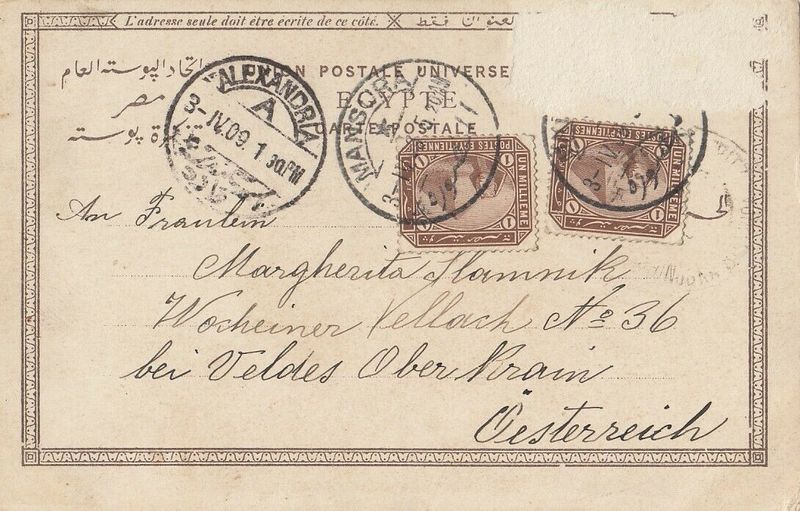 L'adresse seule doit être écrite de ce côté.
العنوان فقط
اتحاد البوسته العام
ON POSTALE UNIVERSE
مصر
EGYPTE
تذكرة بوسته
CARTE POSTALE
ALEXANDRIA
A
3-IV.09. 1 30 PM
MANSOURA
POSTES EGYPTIENNES
UN MILLIEME
1
1
POSTES EGYPTIENNES
UN MILLIEME
1
1
3-IV
An Fraulein
Margherita Hlamnik
Wocheiner Vellach No 36
bei Veldes Ober Krain
Oesterreich